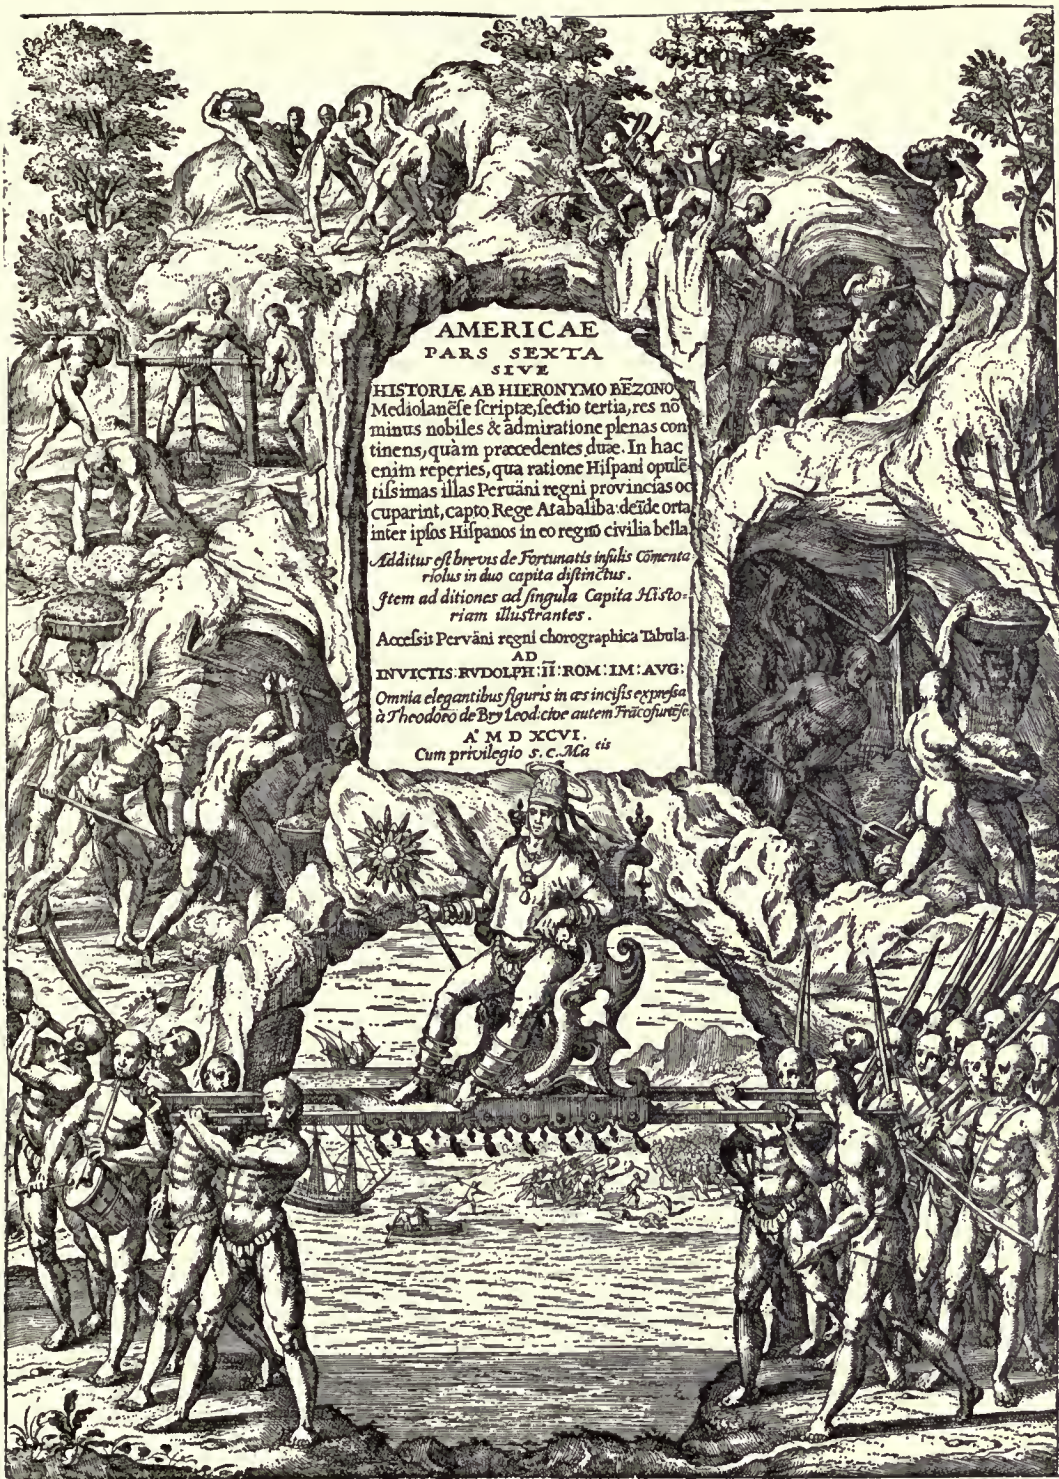 AMERICAE
PARS SEXTA
SIVE
HISTORIÆ AB HIERONYMO BE̅ZONO
Mediolanẽse scriptæ, sectio tertia, res nõ
minus nobiles & admiratione plenas con
tinens, quàm præcedentes duæ. In hac
enim reperies, qua ratione Hispani opulẽ
tissimas illas Peruäni regni provincias oc
cuparint, capto Rege Atabaliba: deĩde orta
inter ipsos Hispanos in eo regno civilia bella
Additur est brevis de Fortunatis insulis Cõmenta
riolus in duo capita distinctus.
Item additiones ad singula Capita Histo=
riam illustrantes.
Accessit Perväni regni chorographica Tabula.
AD
INVICTIS: RVDOLPH: II: ROM: IM: AVG:
Omnia elegantibus figuris in æs incisis expressa
à Theodoro de Bry Leod: cive autem Frãcofurtẽse
Aº M D XCVI.
Cum privilegio S. C. Ma tis